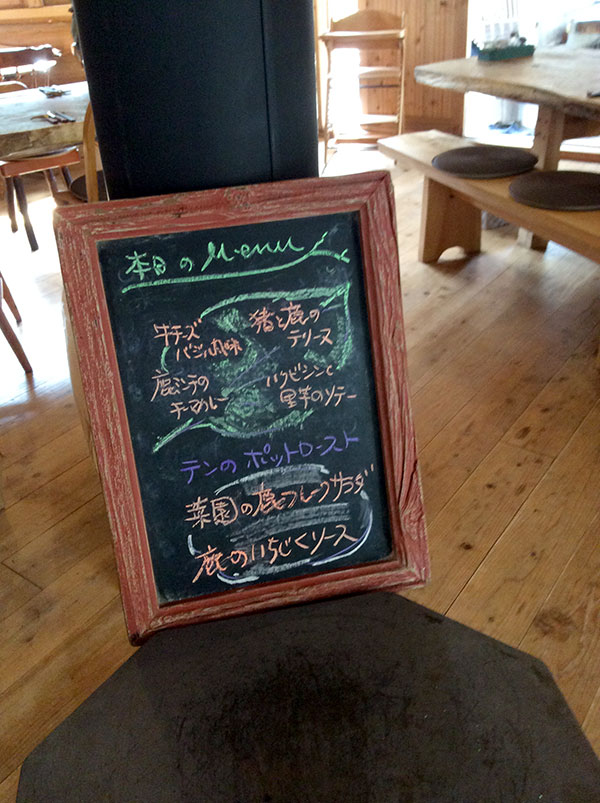 本日のMenu
牛チーズ
バジル風味
猪と鹿の
テリーヌ
鹿ミンチの
キーマカレー
ハクビシンと
里芋のソテー
テンのポットロースト
菜園の鹿フレークサラダ
鹿のいちじくソース